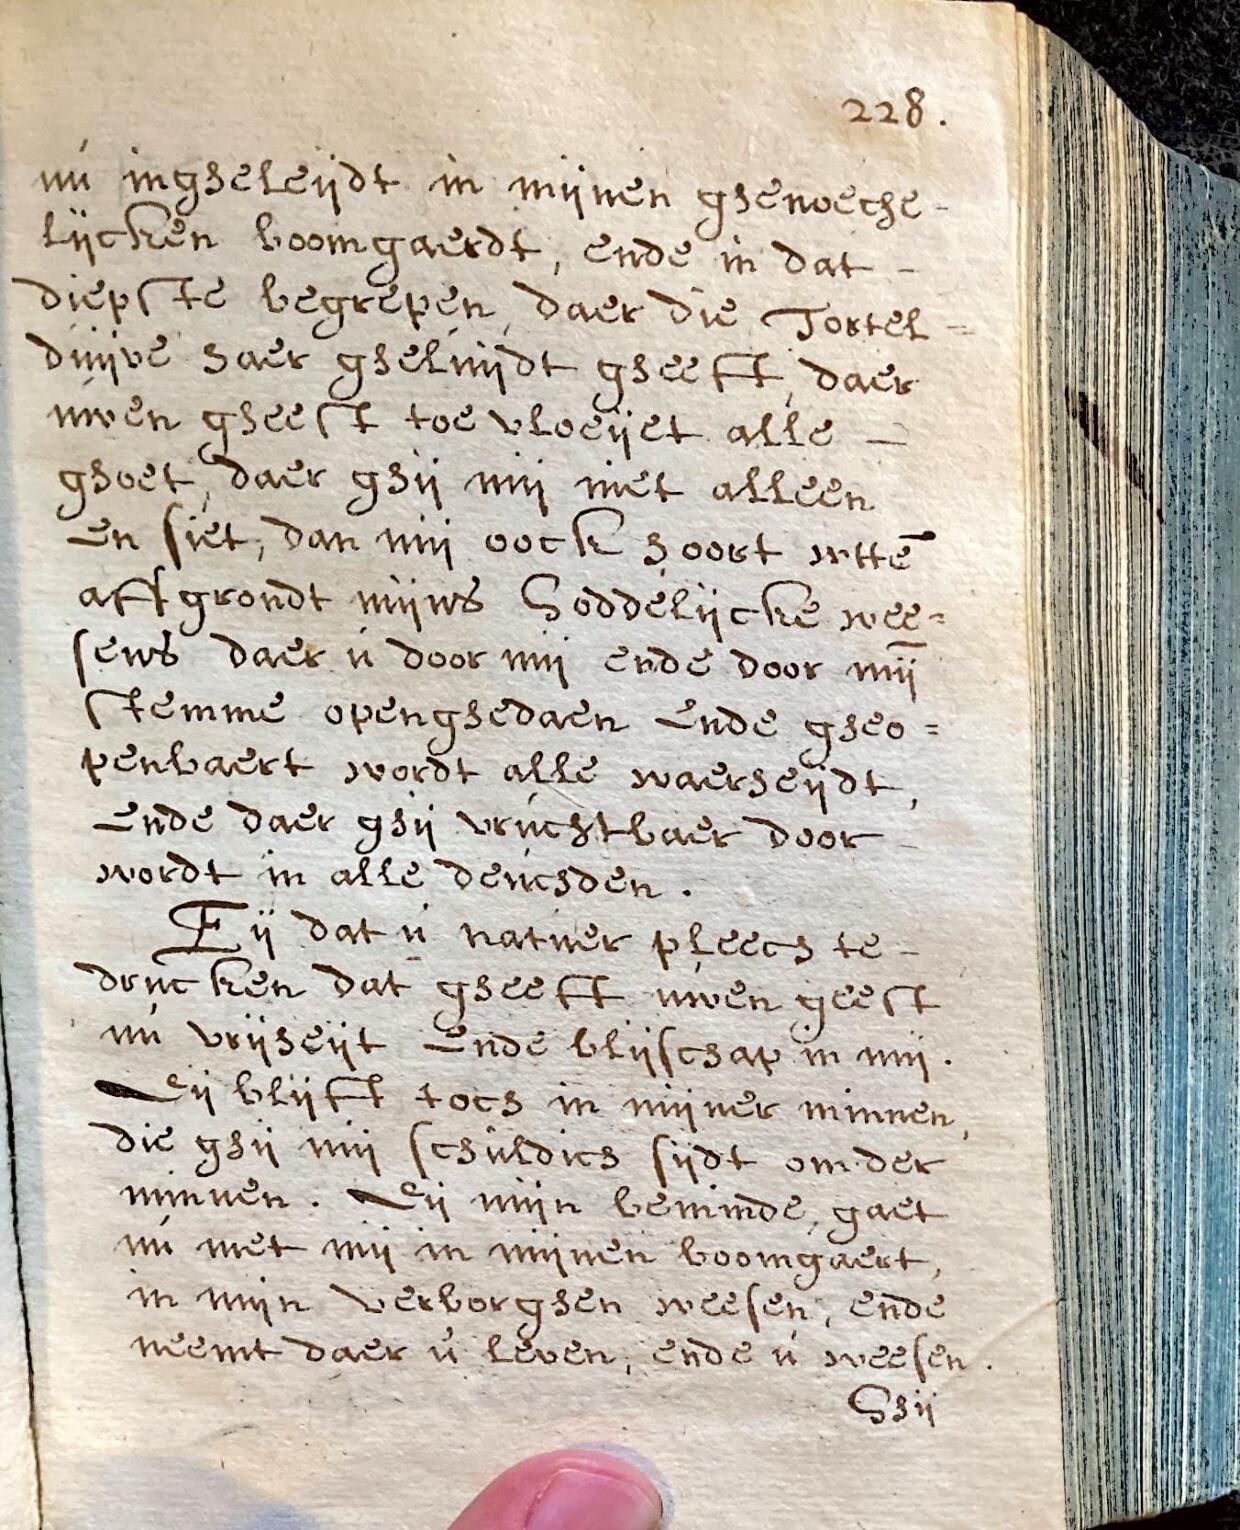 228.
nú ingheleijdt in mijnen ghenoeche-
lijcken boomgaerdt, ende in dat -
diepste begrepen, daer die Tortel=
duijve haer gheluijdt gheeft, daer
uwen gheest toe vloeijet alle -
ghoet, daer ghij mij niet alleen
en siet, dan mij oock hoort wttē
affgrondt mijns Goddelijcke wee=
sens daer ú door mij ende door mij̄
stemme openghedaen ende gheo=
penbaert wordt alle waerheijdt,
ende daer ghij vrúchtbaer door -
wordt in alle deúchden.
Eij dat ú natuer pleech te -
drucken dat gheeft uwen geest
nú vrijheijt ende blijschap in mij.
Eij blijft toch in mijner minnen,
die ghij mij schúldich sijdt om der
minnen. Eij mijn beminde, gaet
nú met mij in mijnen boomgaert,
in mijn verborghen weesen, ende
neemt daer ú leven, ende ú weesen.
Ghij